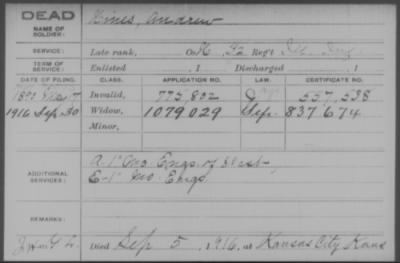 DEAD
NAME OF SOLDIER:
Bines, Andrew
SERVICE:
Late rank, Co. K, 52 Reg't Ill. Inf.
TERM OF SERVICE:
Enlisted , 1 Discharged , 1
DATE OF FILING. CLASS. APPLICATION NO. LAW. CERTIFICATE NO.
Invalid, 775,802 557,538
1916 Sep. 30 Widow, 1079029 Sep. 837674
Minor,
ADDITIONAL SERVICES:
A. 1" Mo. Engs. of West
E-1" Mo. Engs
REMARKS:
Died Sep 5, 1916, at Kansas City Kans